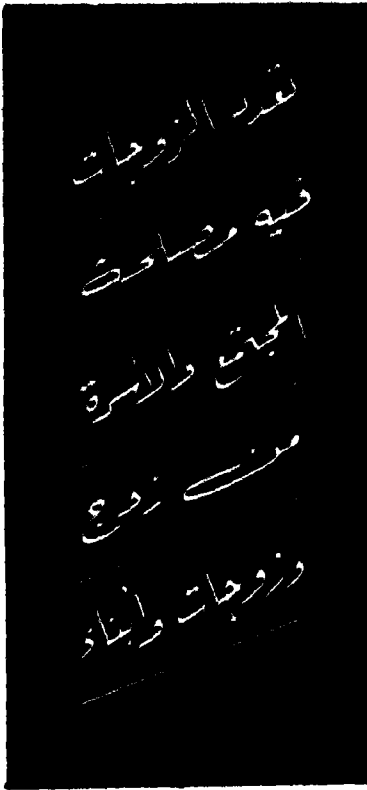 تعدد الزوجات
فيه مصلحة
المجتمع والأسرة
من زوج
وزوجات وأبناء